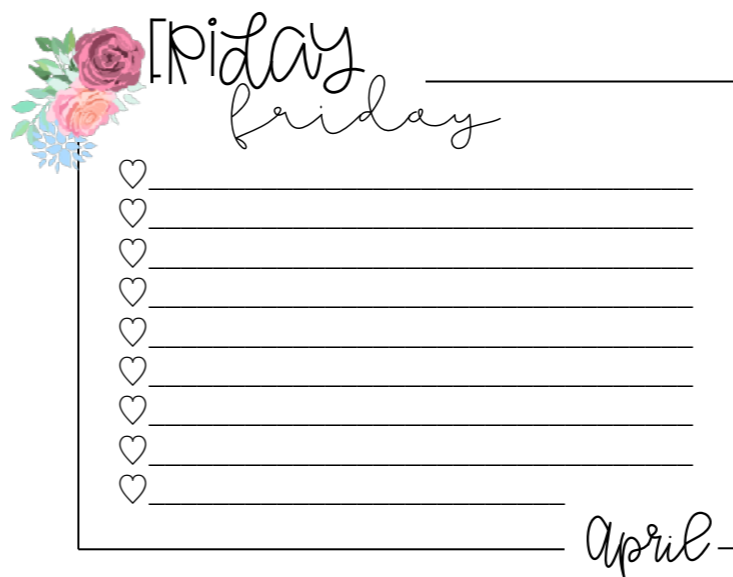 FRIDAY
friday
april